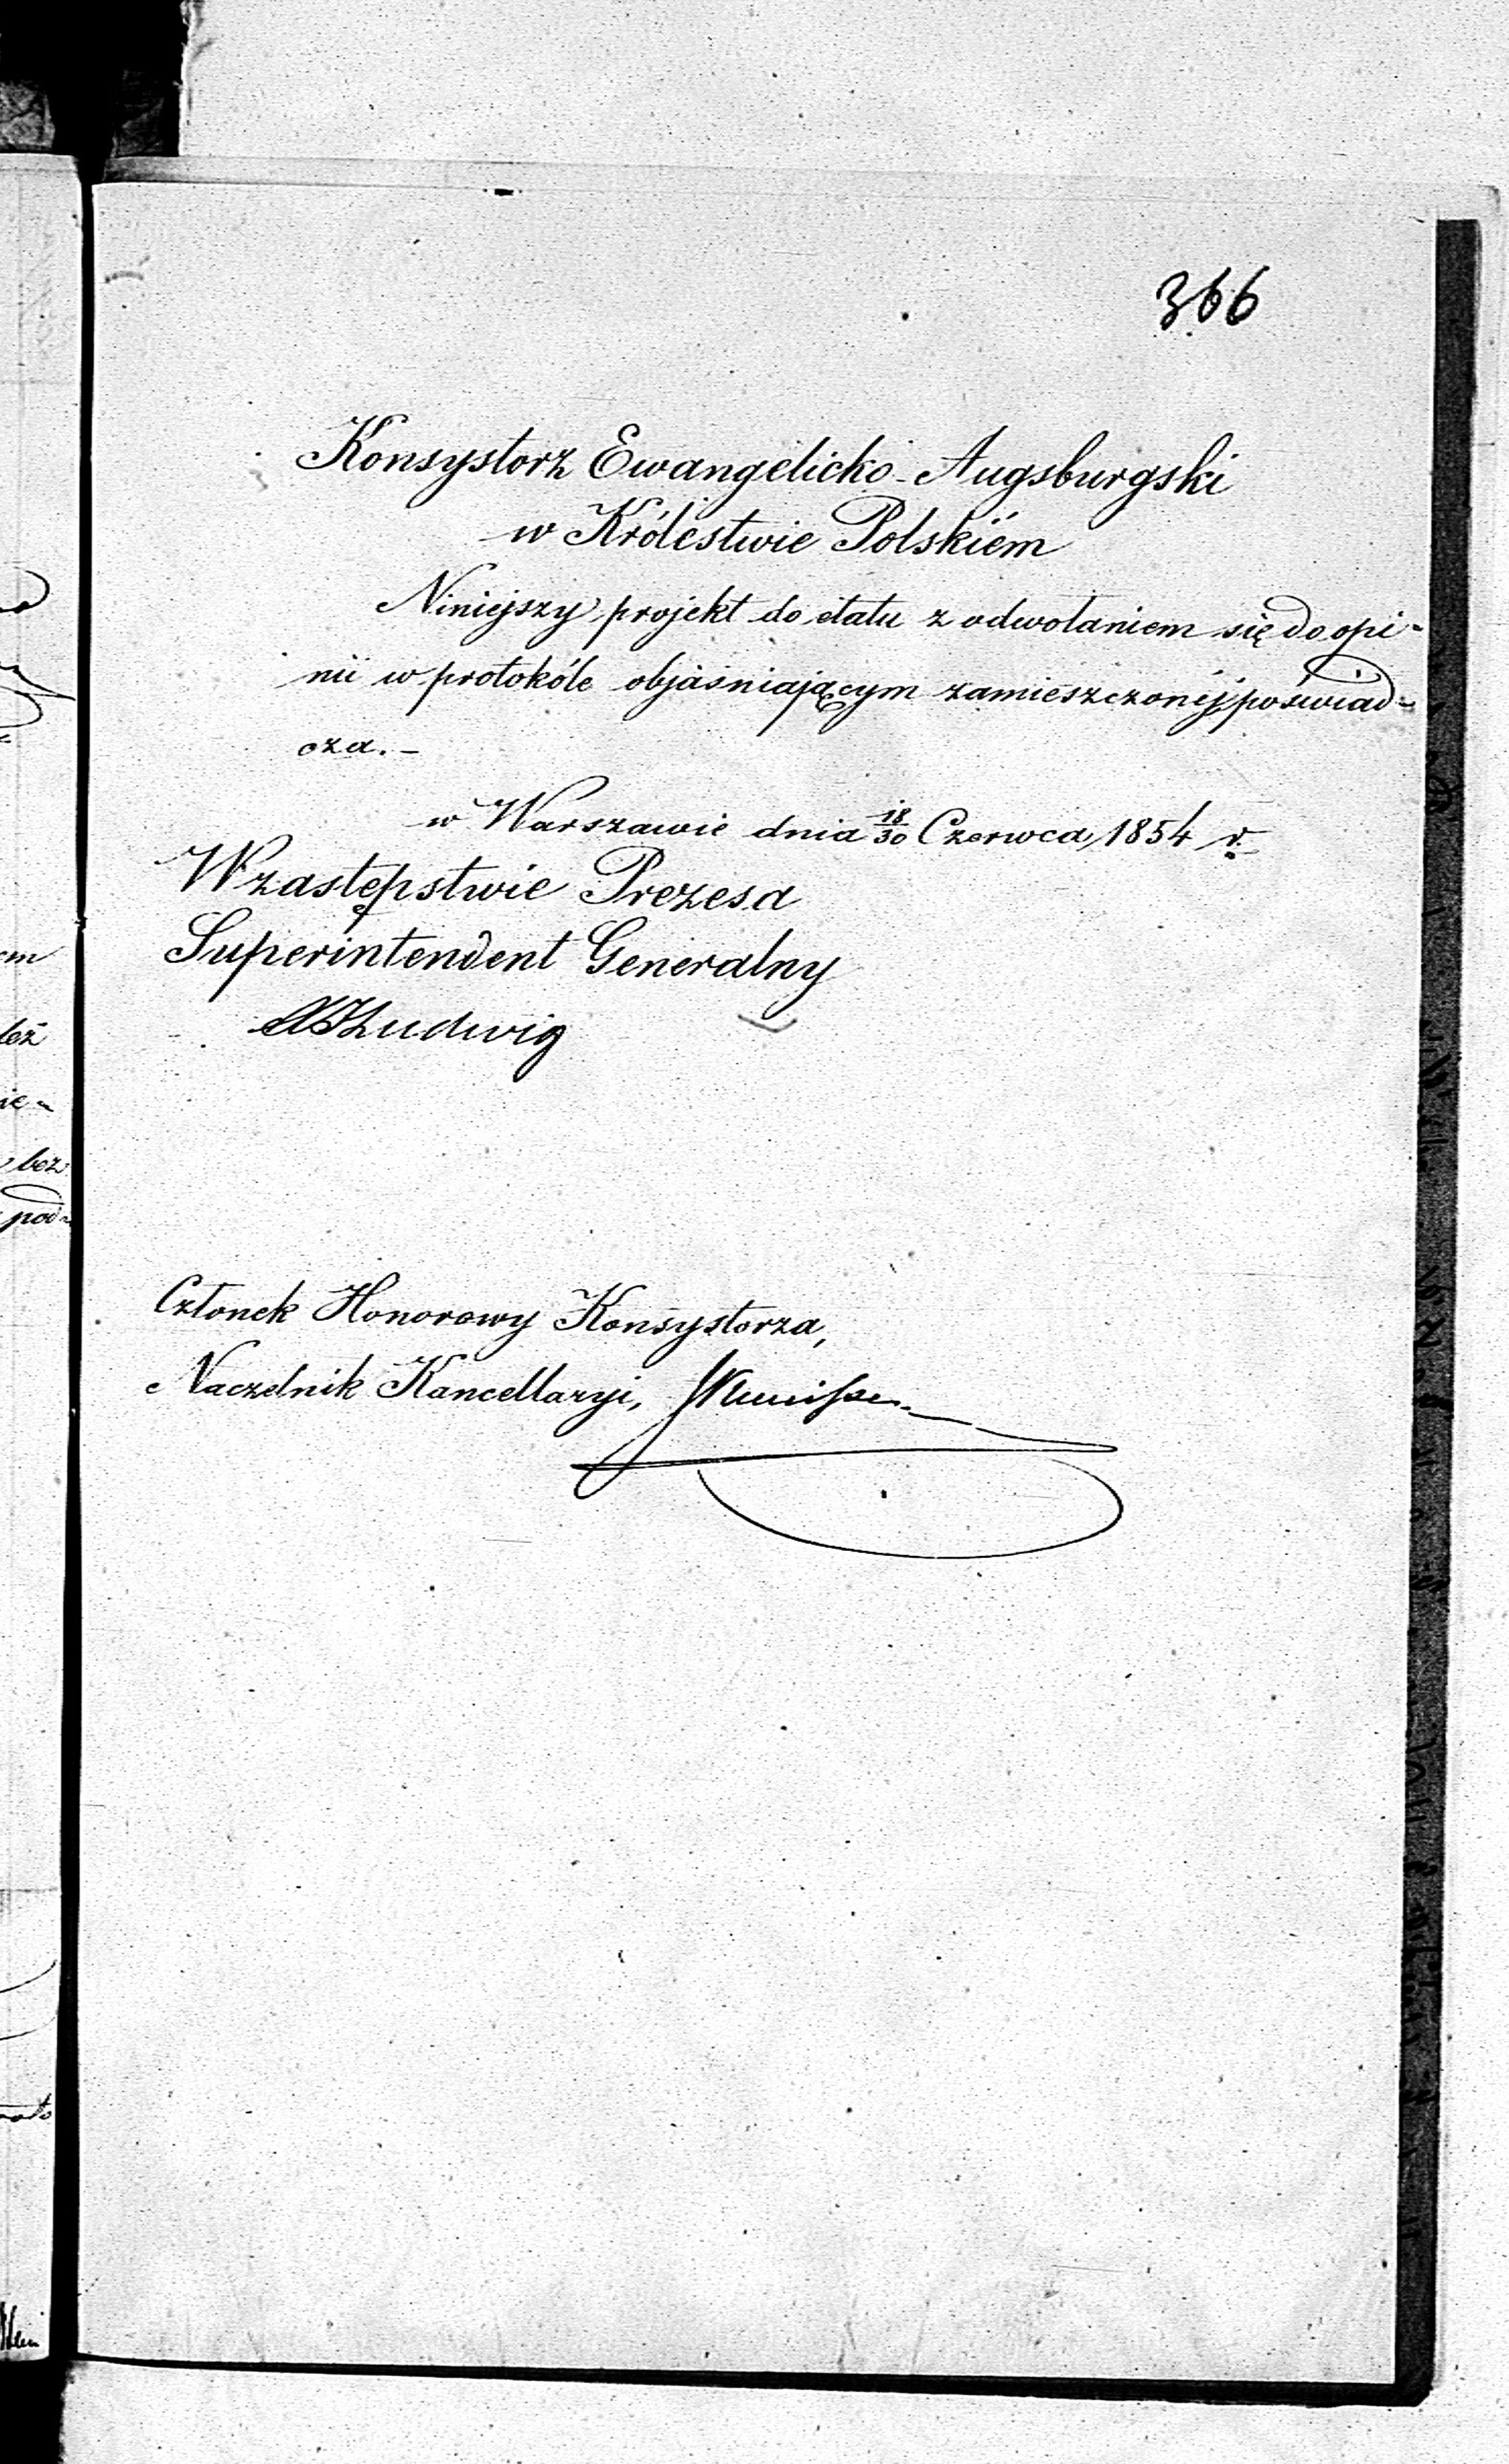 366
Konsystorz Ewangelicko-Augsburgski
w Królestwie Polskiém
Niniejszy projekt do etatu z odwołaniem się do opi-
nii w protokóle objaśniającym zamieszczonéj poświad-
cza. –
w Warszawie dnia 18/30 Czerwca 1854 r.
W zastępstwie Prezesa
Superintendent Generalny
Ludwig
Członek Honorowy Konsystorza,
Naczelnik Kancellaryi,